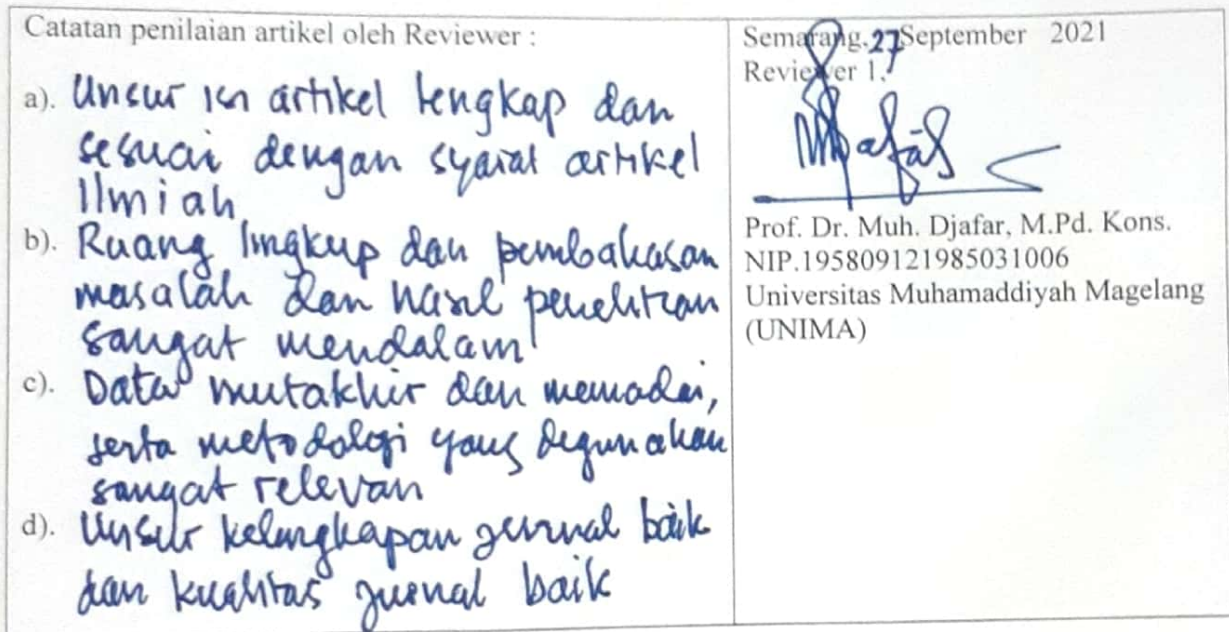 Catatan penilaian artikel oleh Reviewer :
a). Unsur isi artikel lengkap dan
sesuai dengan syarat artikel
Ilmiah
b). Ruang lingkup dan pembahasan
masalah dan hasil penelitian
sangat mendalam
c). Data mutakhir dan memadai,
serta metodologi yang digunakan
sangat relevan
d). Unsur kelengkapan jurnal baik
dan kualitas jurnal baik
Semarang, 27 September 2021
Reviewer 1.
Prof. Dr. Muh. Djafar, M.Pd. Kons.
NIP.195809121985031006
Universitas Muhamaddiyah Magelang
(UNIMA)